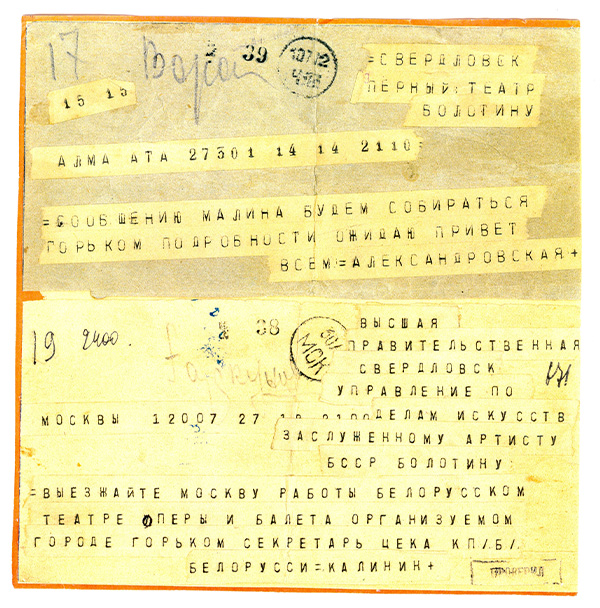 17
39
=СВЕРДЛОВСК
ПЕРНЫЙ ТЕАТР
15 15
БОЛОТИНУ
АЛМА АТА 27301 14 14 2110=
=СООБЩЕНИЮ МАЛИНА БУДЕМ СОБИРАТЬСЯ
ГОРЬКОМ ПОДРОБНОСТИ ОЖИДАЮ ПРИВЕТ
ВСЕМ=АЛЕКСАНДРОВСКАЯ+
38
19 2400.
МСК
ВЫСШАЯ
ПРАВИТЕЛЬСТВЕННАЯ
СВЕРДЛОВСК
УПРАВЛЕНИЕ ПО
МОСКВЫ 12007 27 ДЕЛАМ ИСКУССТВ
ЗАСЛУЖЕННОМУ АРТИСТУ
БССР БОЛОТИНУ
=ВЫЕЗЖАЙТЕ МОСКВУ РАБОТЫ БЕЛОРУССКОМ
ТЕАТРЕ ОПЕРЫ И БАЛЕТА ОРГАНИЗУЕМОМ
ГОРОДЕ ГОРЬКОМ СЕКРЕТАРЬ ЦЕКА КП/Б/
БЕЛОРУССИ=КАЛИНИН+